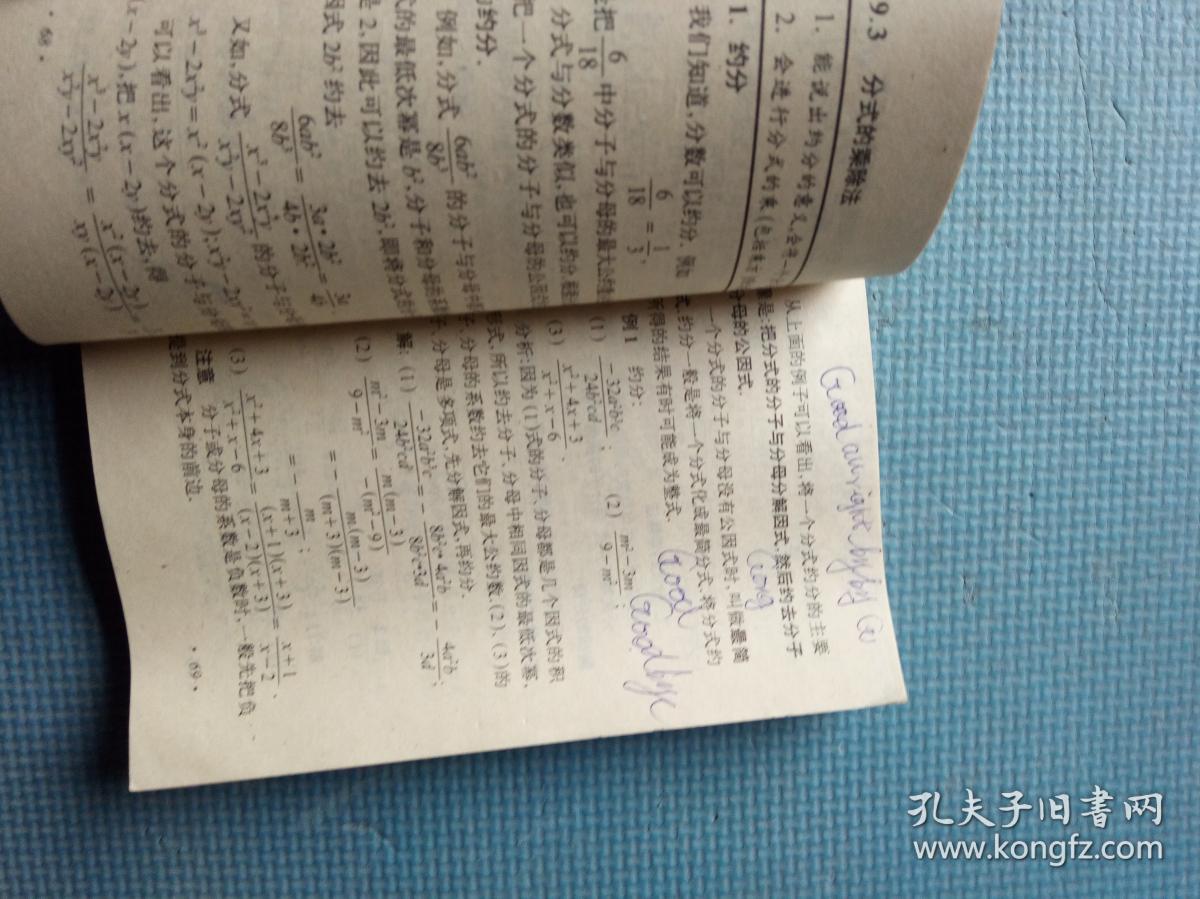 9.3 分式的乘除法
1. 能说出约分的意义,会将一个
2. 会进行分式的乘(包括乘方
1. 约分
我们知道,分数可以约分. 例如
把 6/18 中分子与分母的最大公约数
6/18 = 1/3,
分式与分数类似,也可以约分.
把一个分式的分子与分母的公因式
约分.
例如,分式 6ab²/8b³ 的分子与分母
式的最低次幂是 b²,分子和分母的系数
是 2,因此可以约去 2b²,即将分式的
因式 2b² 约去
6ab²/8b³ = 3a·2b²/4b·2b² = 3a/4b.
又如,分式 x³-2x²y/x²y-2xy² 的分子与分母
x³-2x²y=x²(x-2y), x²y-2xy²
可以看出,这个分式的分子与分母
(x-2y),把 x(x-2y)约去,得
x³-2x²y/x²y-2xy² = x²(x-2y)/xy(x-2y)
·68·
Good
从上面的例子可以看出,将一个分式约分的主要
是:把分式的分子与分母分解因式,然后约去分子
分母的公因式.
一个分式的分子与分母没有公因式时,叫做最简
式.约分一般是将一个分式化成最简分式,将分式约
所得的结果有时可能成为整式.
Good
Goodbye
例1 约分:
(1) -32a²b³c/24b²cd; (2) m²-3m/9-m²;
(3) x²+4x+3/x²+x-6.
分析:因为(1)式的分子、分母都是几个因式的积
形式,所以约去分子、分母中相同因式的最低次幂,
子、分母的系数约去它们的最大公约数.(2)、(3)的
子、分母是多项式,先分解因式,再约分.
解:(1) -32a²b³c/24b²cd = -8b²c·4a²b/8b²c·3d = -4a²b/3d;
(2) m²-3m/9-m² = m(m-3)/-(m²-9)
= -m(m-3)/(m+3)(m-3)
= -m/m+3;
(3) x²+4x+3/x²+x-6 = (x+1)(x+3)/(x-2)(x+3) = x+1/x-2.
注意 分子或分母的系数是负数时,一般先把负
提到分式本身的前边.
·69·
孔夫子旧书网
www.kongfz.com